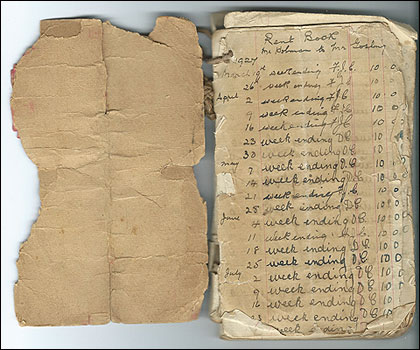 Rent Book
Mr Holman to Mr Gosling
1927
March 19th week ending F.J.C 10 0
26th week ending F.J.C 10 0
April 2 week ending F.J.C 10 0
9 week ending F.J.C 10 0
16 week ending F.J.C 10 0
23 week ending D.C 10 0
30 week ending D.C 10 0
May 7 week ending D.C 10 0
14 week ending D.C 10 0
21 week ending C. 10 0
28 week ending D.C 10 0
June 4 week ending D.C 10 0
11 week ending C. 10 0
18 week ending D.C 10 0
25 week ending D.C 10 0
July 2 week ending D.C 10 0
9 week ending D.C 10 0
16 week ending D.C 10 0
23 week ending D.C 10 0
week